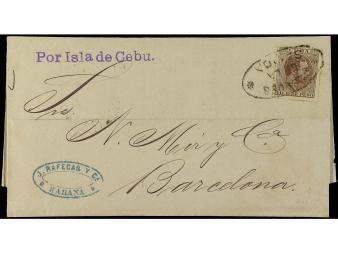 Por Isla de Cebu.
N. Mir y Cª
Barcelona.
J. RAFECAS Y Cª
HABANA